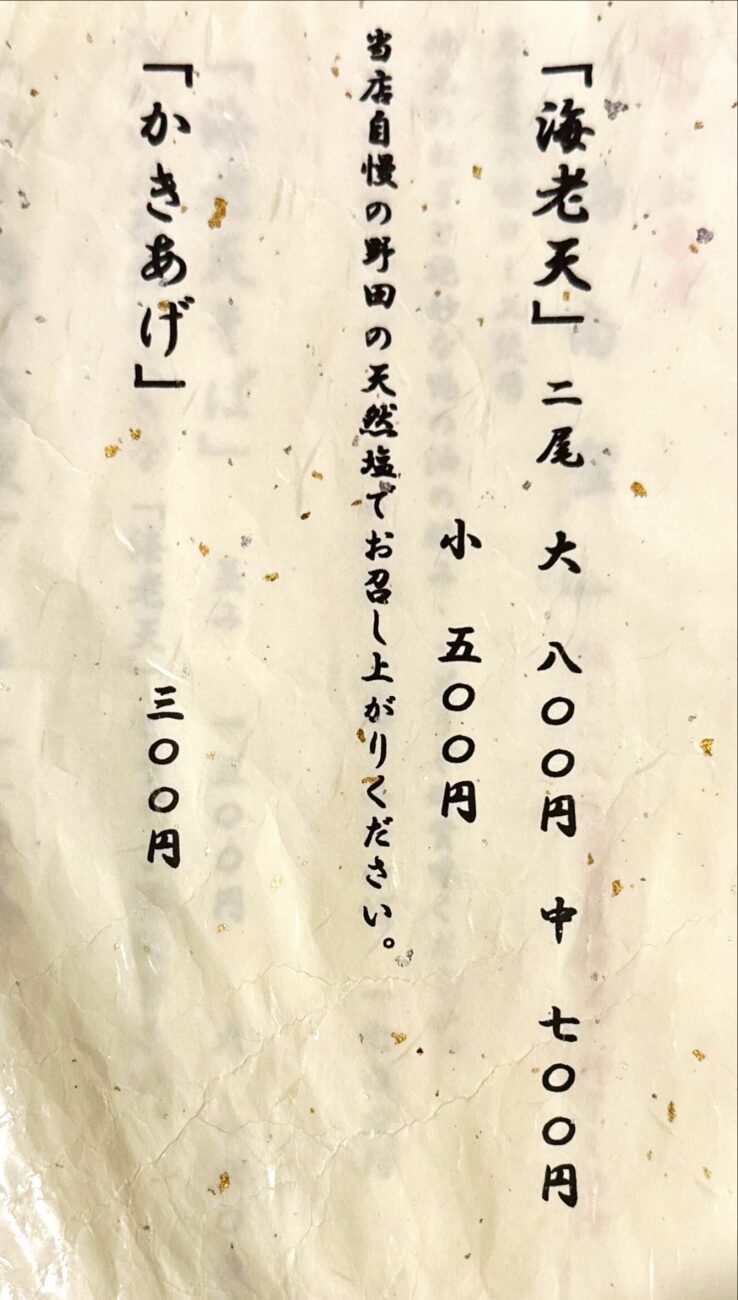 「海老天」 二尾 大 八〇〇円 中 七〇〇円
小 五〇〇円
当店自慢の野田の天然塩でお召し上がりください。
「かきあげ」 三〇〇円